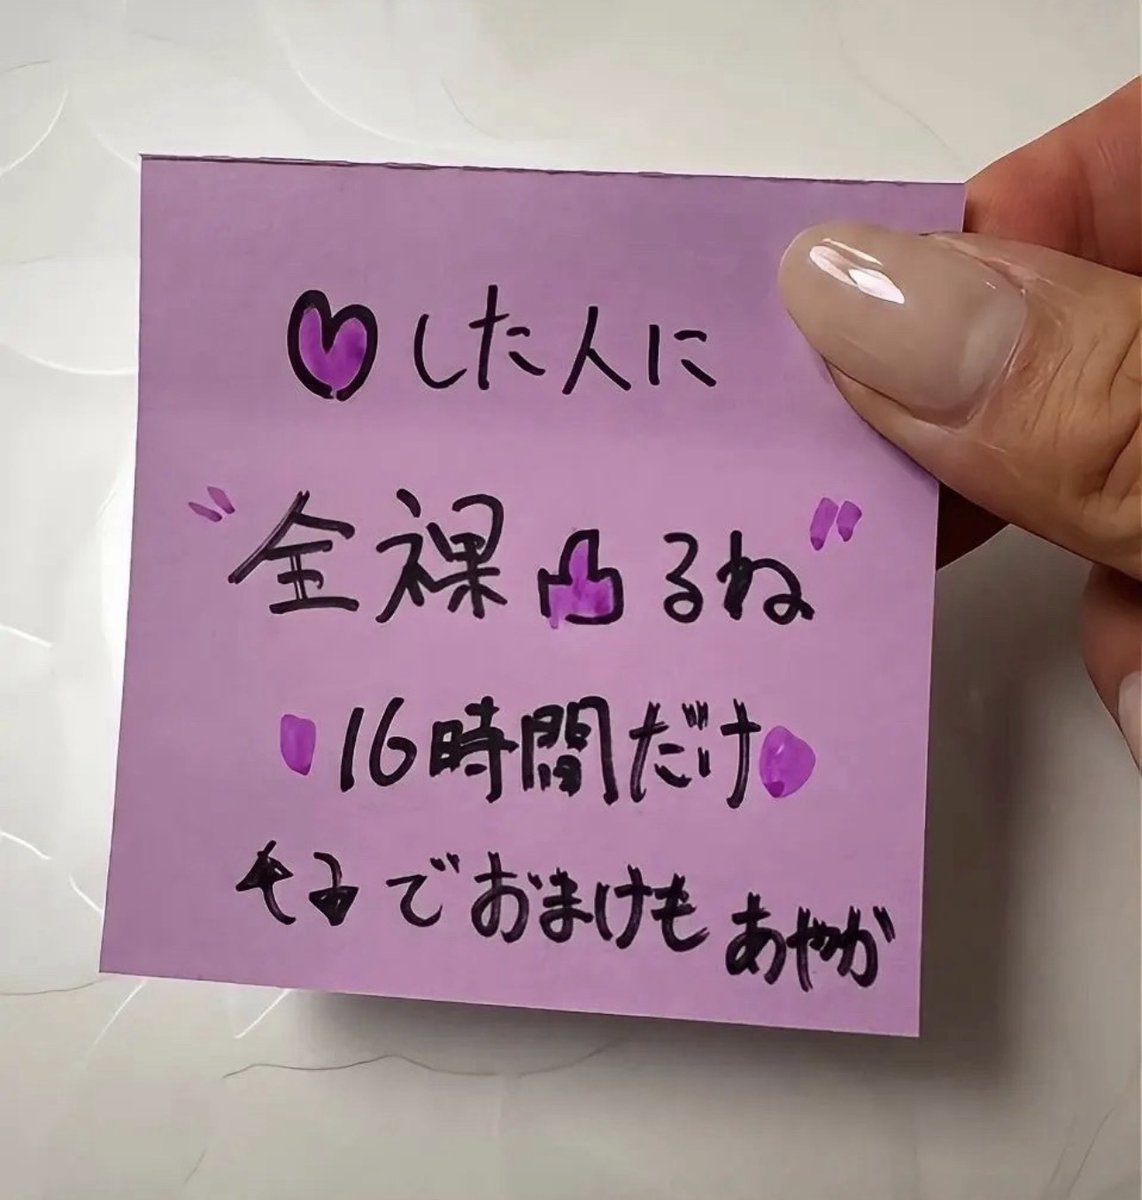 ♡した人に
"全裸凸るね"
16時間だけ
でおまけも あやが